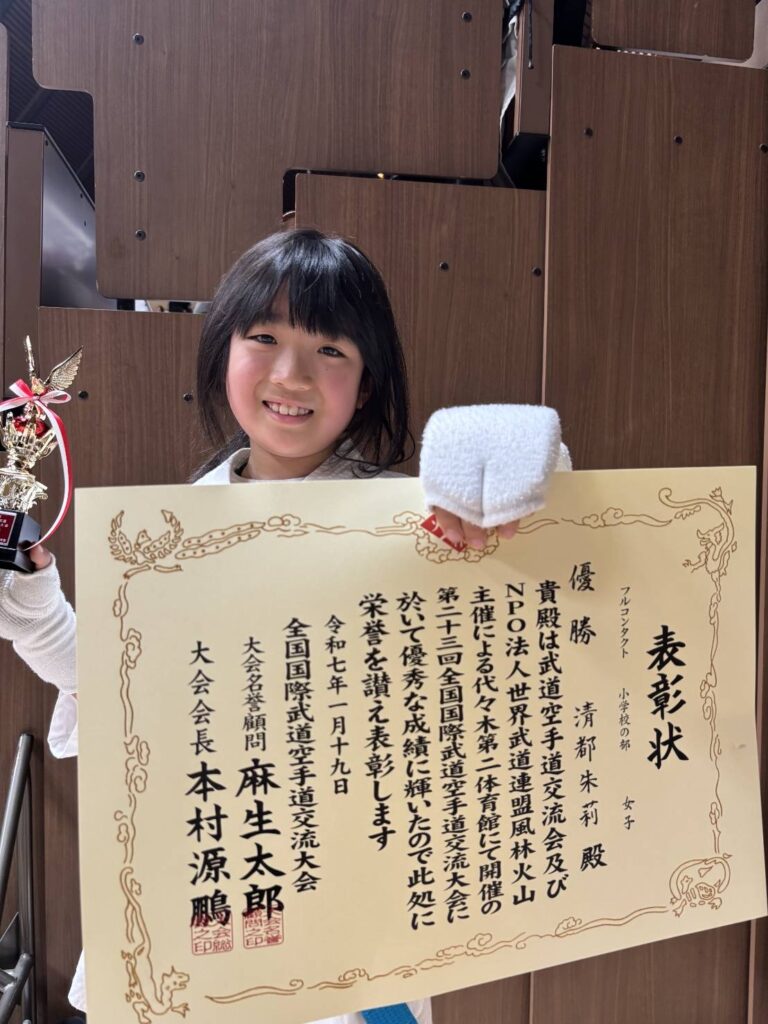 表彰状
フルコンタクト 小学校の部 女子
優勝 清都朱莉 殿
貴殿は武道空手道交流会及び
NPO法人世界武道連盟風林火山
主催による代々木第二体育館にて開催の
第二十三回全国国際武道空手道交流大会に
於いて優秀な成績に輝いたので此処に
栄誉を讃え表彰します
令和七年一月十九日
全国国際武道空手道交流大会
大会名誉顧問 麻生太郎
大会会長 本村源鵬